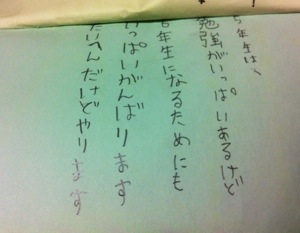 5年生は、
勉強がいっぱいあるけど
6年生になるためにも
いっぱいがんばります
たいへんだけどやります